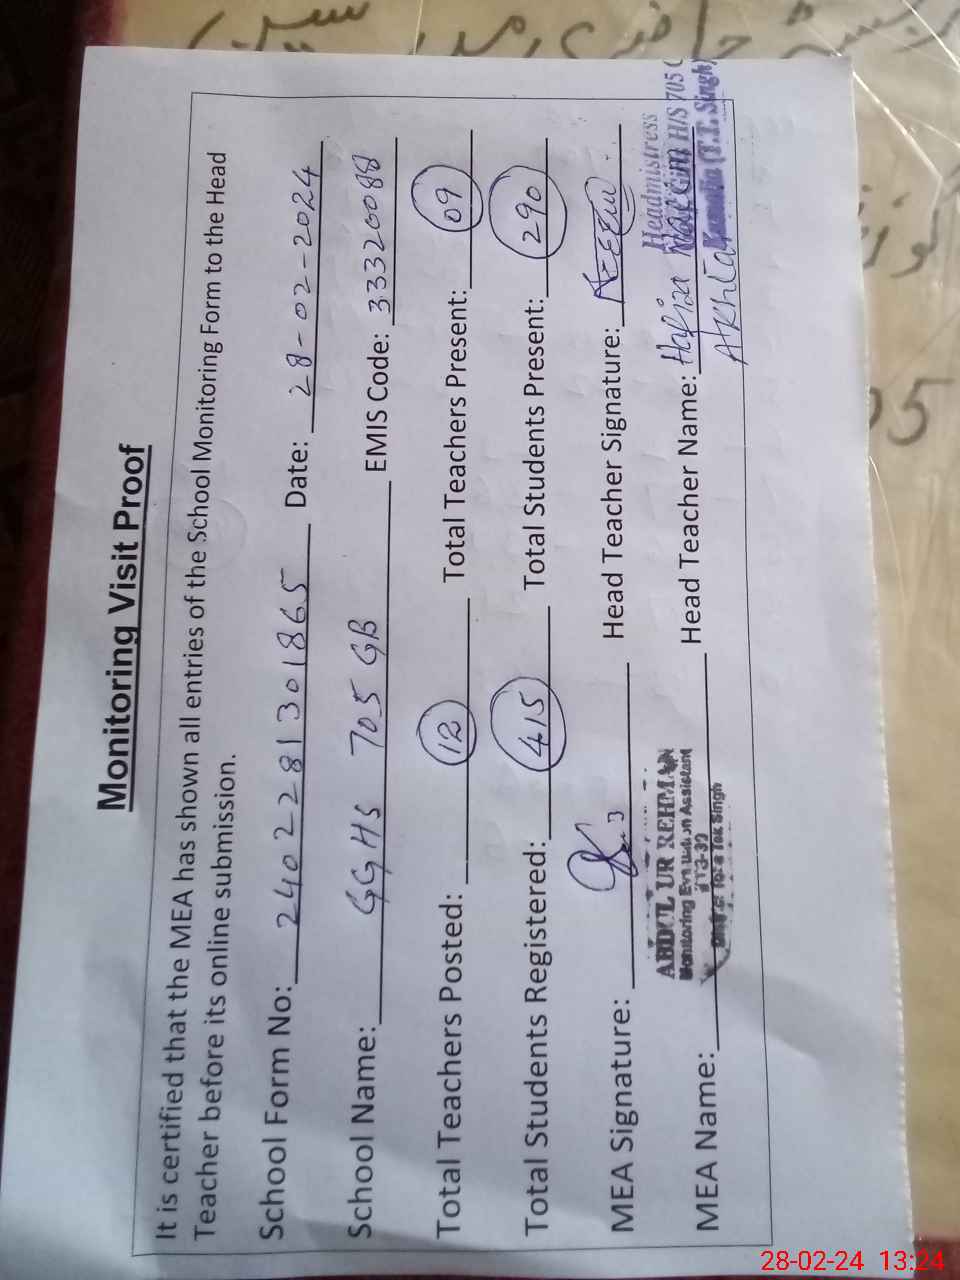 Monitoring Visit Proof
It is certified that the MEA has shown all entries of the School Monitoring Form to the Head
Teacher before its online submission.
School Form No: 24022281301865 Date: 28-02-2024
School Name: GGHS 705 GB EMIS Code: 33320088
Total Teachers Posted: 12 Total Teachers Present: 09
Total Students Registered: 415 Total Students Present: 290
MEA Signature: Head Teacher Signature:
ABDUL UR REHMAN Headmistress
Monitoring Evaluation Assistant H/S 705
(T.T. Singh)
MEA Name: Head Teacher Name: Hafiza
Akhtar
05
28-02-24 13:24